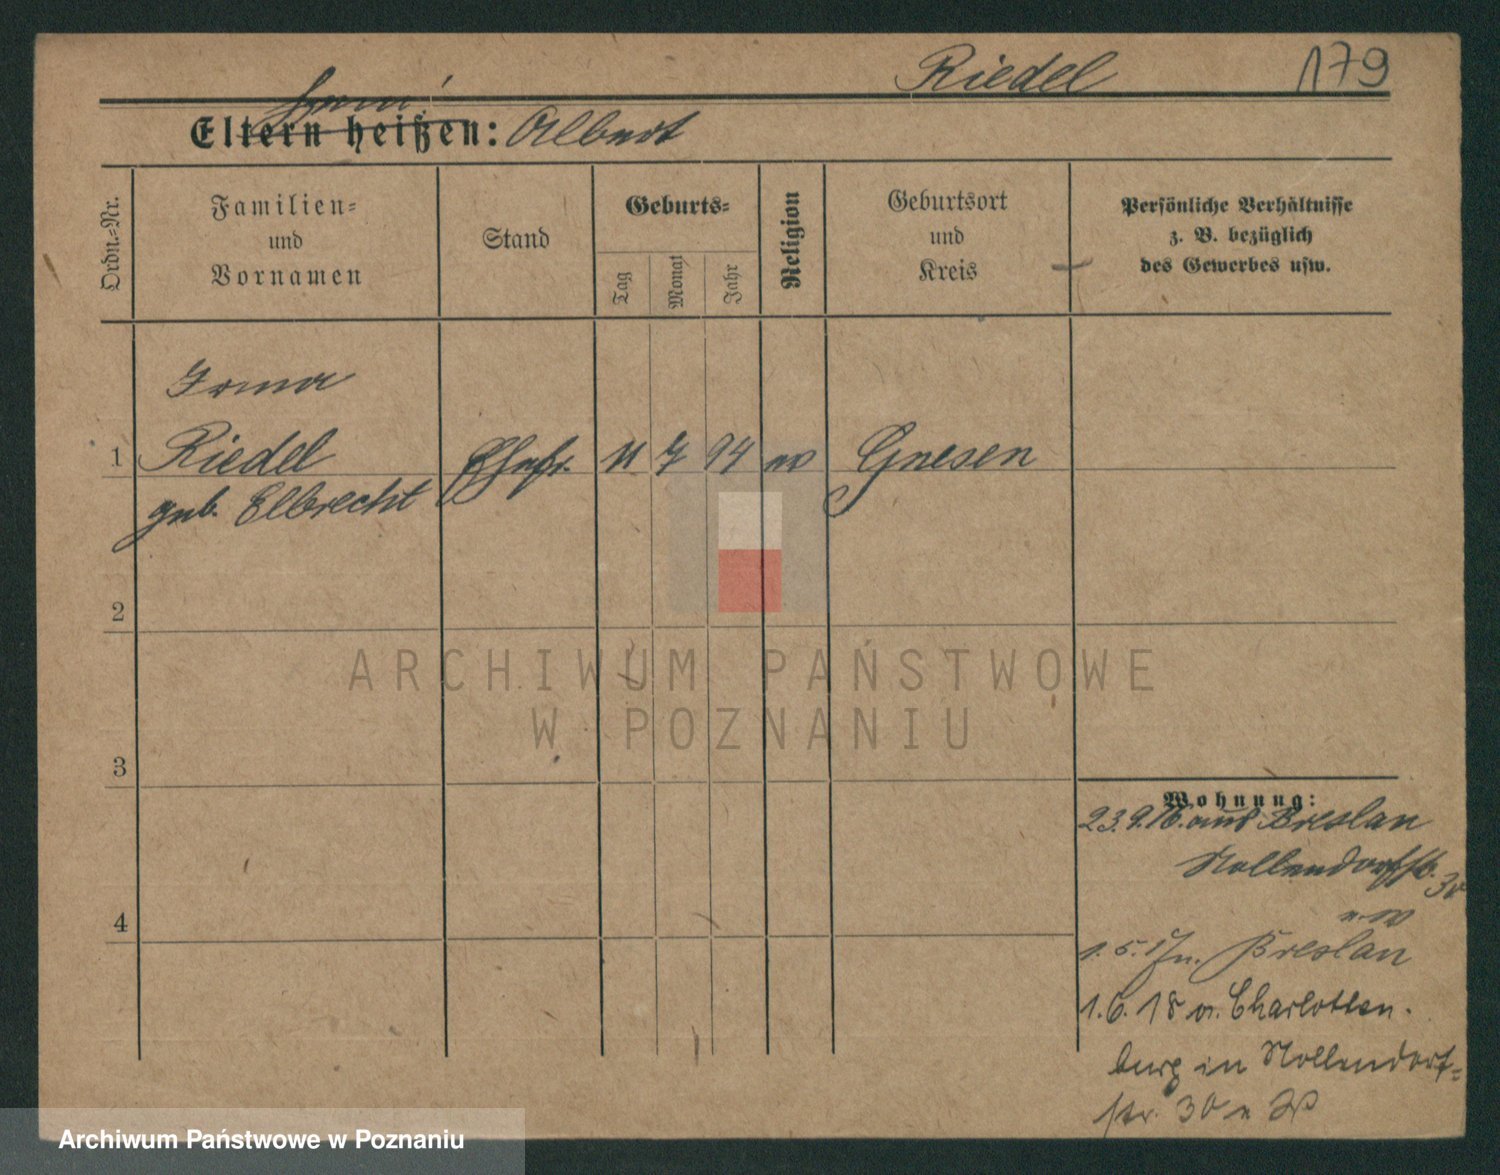 Riedel 179
Eltern heißen: Albert
Ordn.-Nr.
Familien-
und
Vornamen
Stand
Geburts-
Tag
Monat
Jahr
Religion
Geburtsort
und
Kreis
Persönliche Verhältnisse
z. B. bezüglich
des Gewerbes usw.
Irma
1 Riedel Ehefr. 11 7 94 ev Gnesen
geb. Elbrecht
2
3
4
Wohnung:
23.9.16. aus Breslau
Nollendorfstr. 30
1.5.17 n. Breslau
1.6.18 v. Charlotten-
burg in Nollendorf-
str. 30
ARCHIWUM PAŃSTWOWE
W POZNANIU
Archiwum Państwowe w Poznaniu